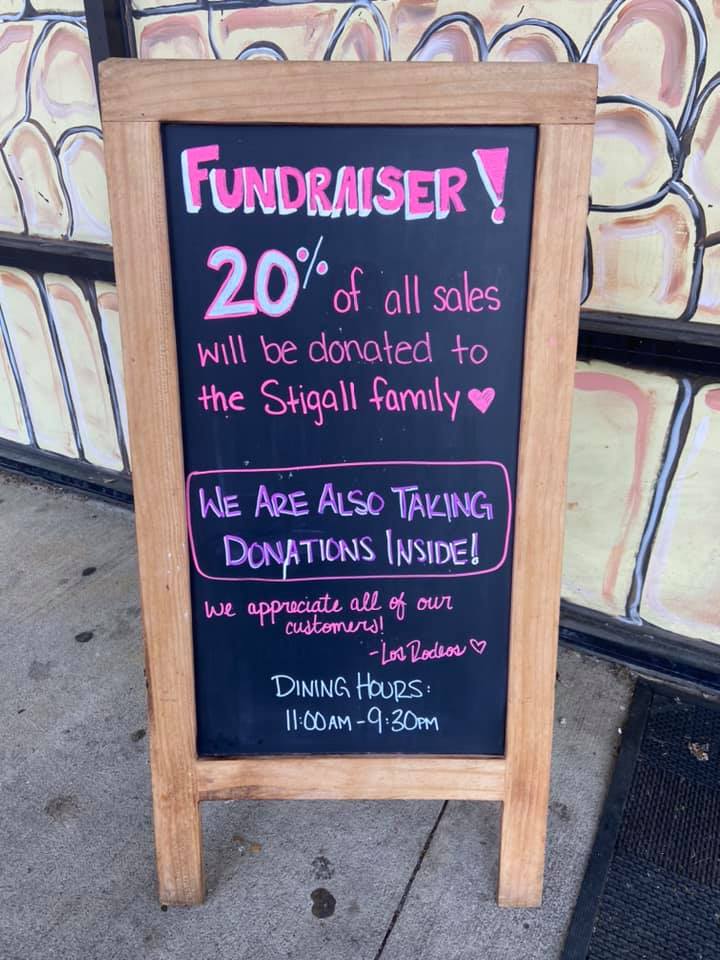 FUNDRAISER!
20% of all sales
will be donated to
the Stigall family ♥
WE ARE ALSO TAKING
DONATIONS INSIDE!
we appreciate all of our
customers!
-Los Rodeos ♡
DINING HOURS:
11:00AM-9:30PM